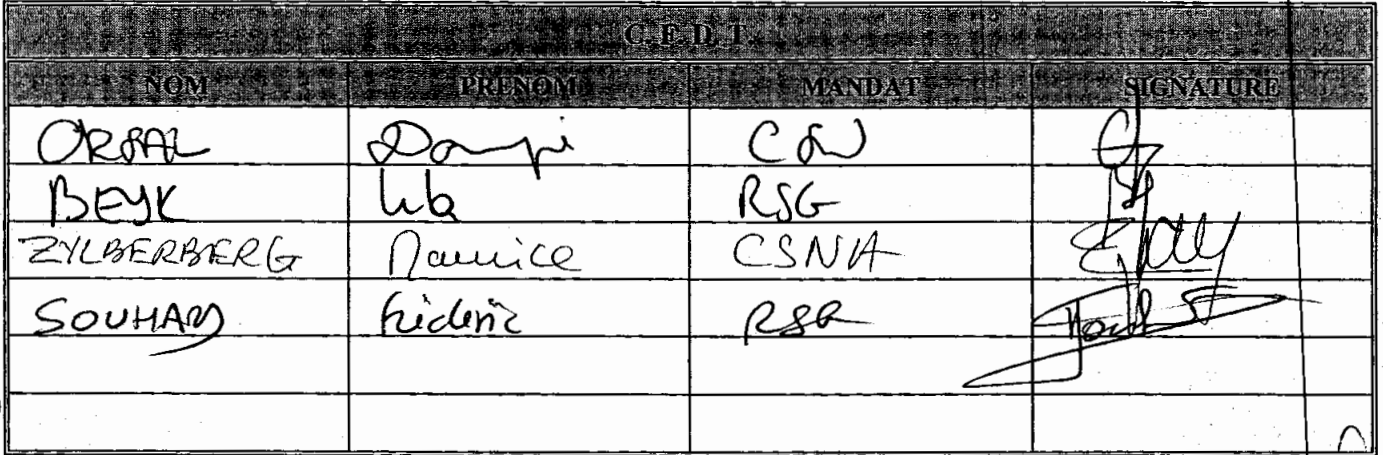 C.F.D.T.
NOM PRENOM MANDAT SIGNATURE
ORSAL CSN
BEYK RSG
ZYLBERBERG Maurice CSNA
SOUHAM Frédéric RSG